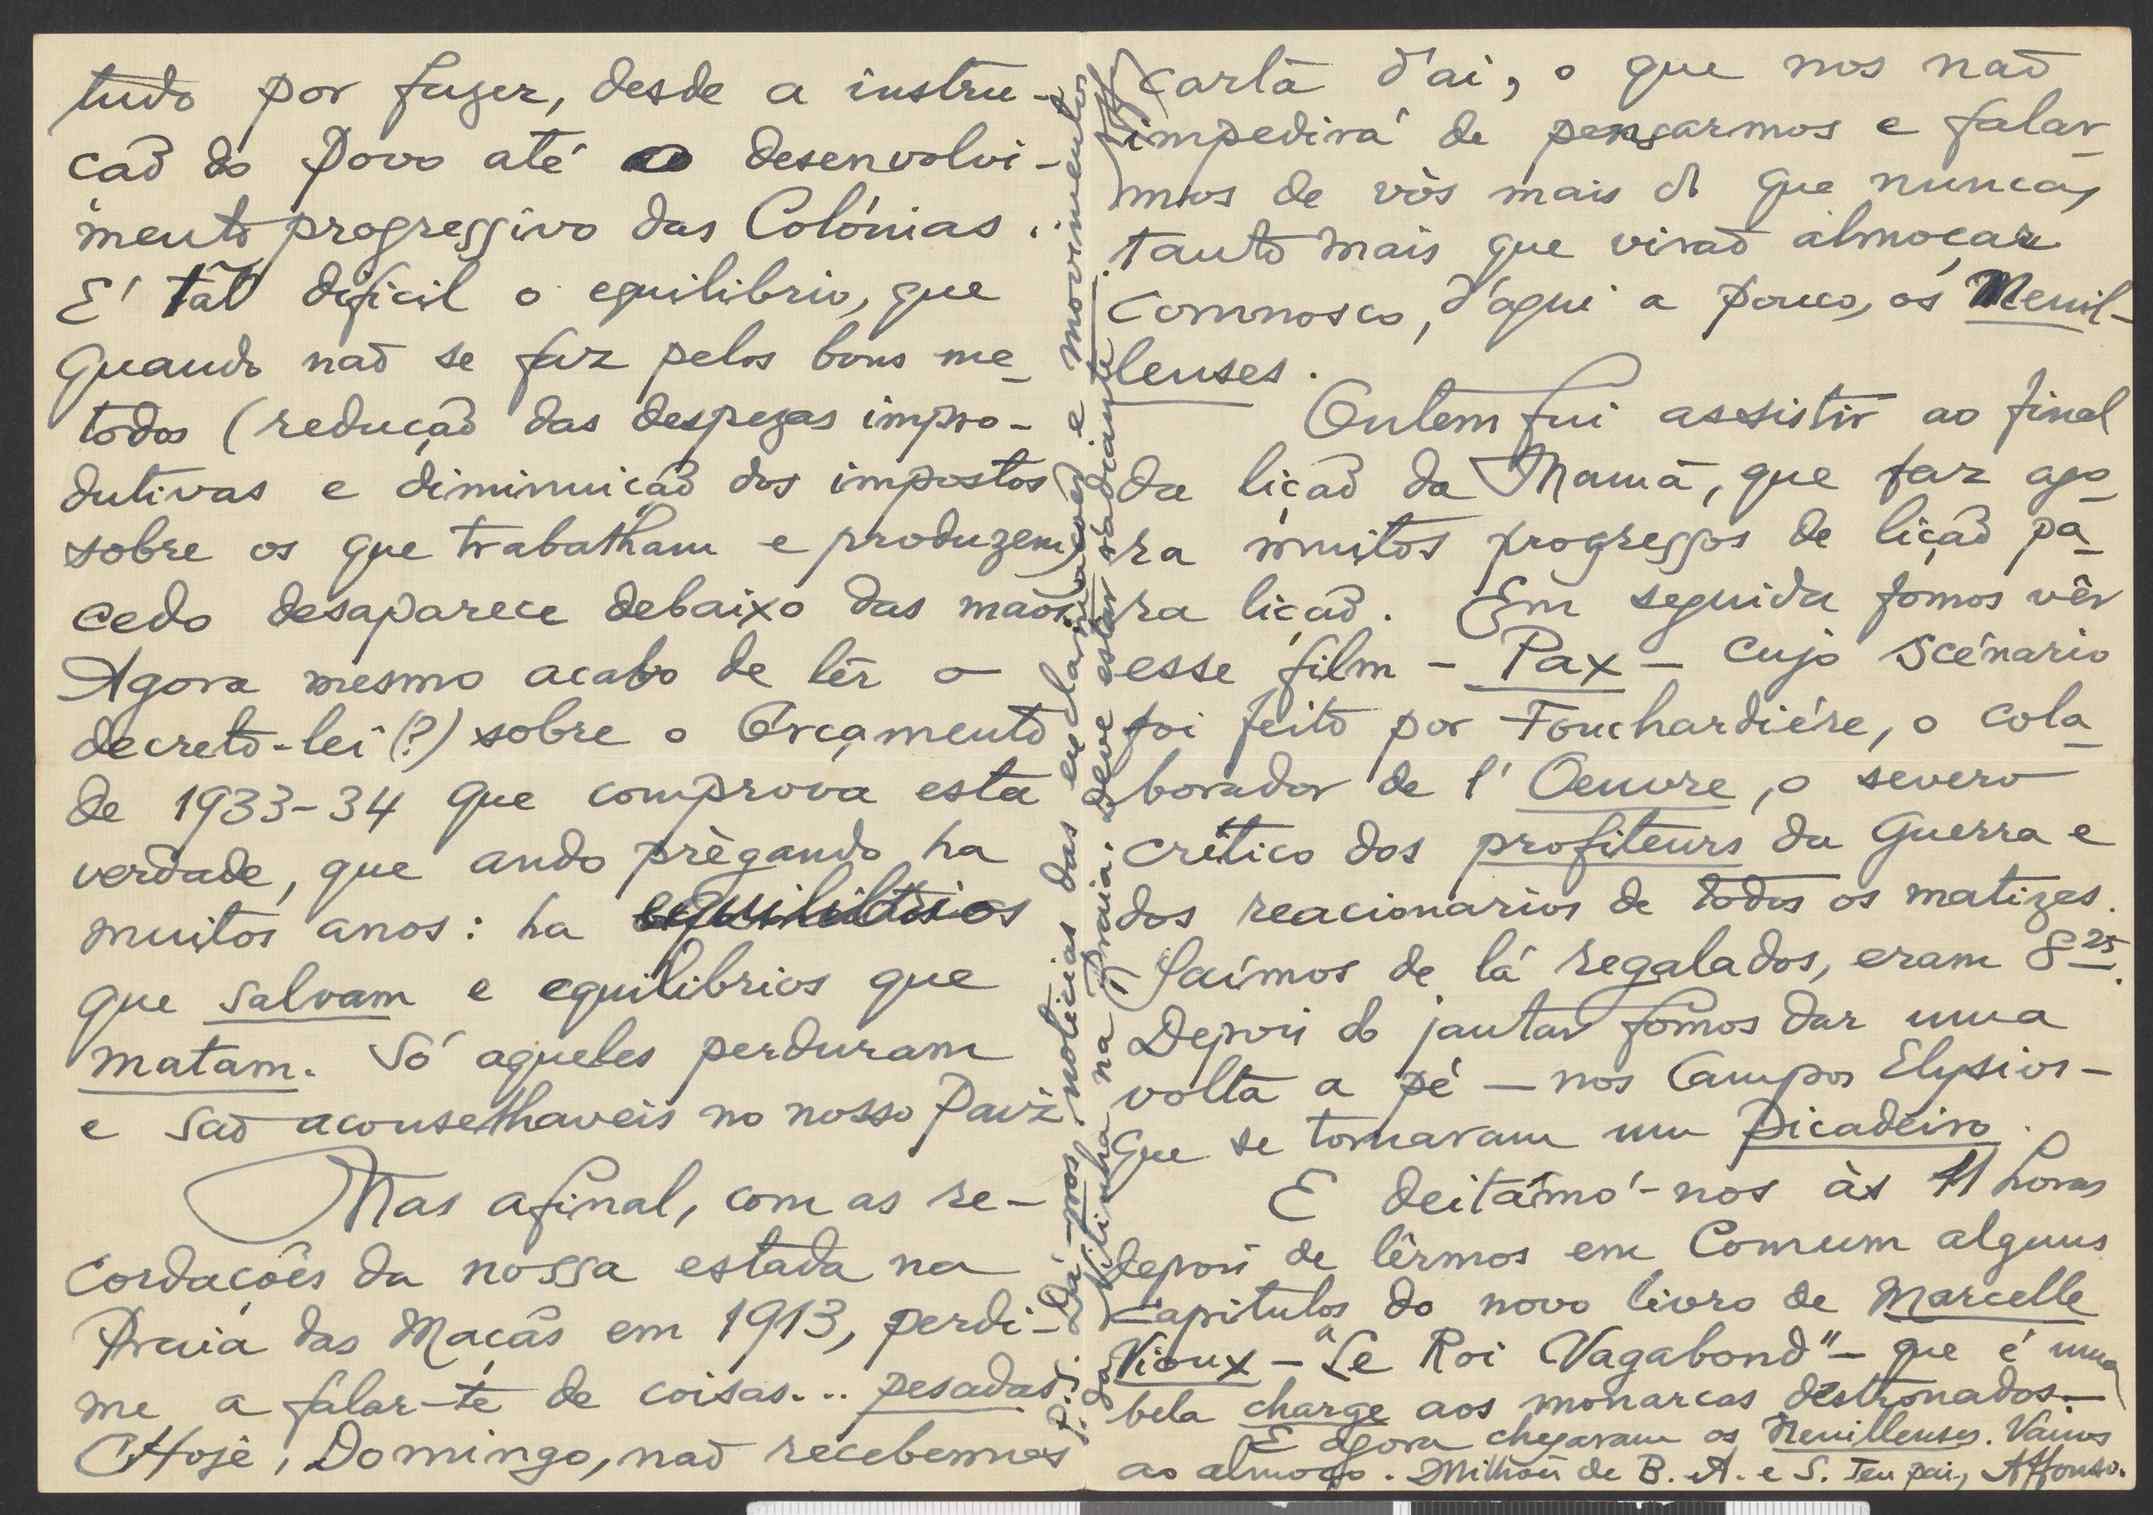 tudo por fazer, desde a instru-
caõ do Povo até ao desenvolvi-
mento progressivo das Colónias...
E' taõ dificil o equilibrio, que
quando naõ se faz pelos bons me-
todos (reducçaõ das despezas impro-
dutivas e diminuiçaõ dos impostos
sobre os que trabalham e produzem)
cedo desaparece debaixo das maõs.
Agora mesmo acabo de lêr o
decreto-lei (?) sobre o Orçamento
de 1933-34 que comprova esta
verdade, que ando prègando ha
muitos anos: ha equilibrios
que salvam e equilibrios que
matam. Só aqueles perduram
e saõ aconselhaveis no nosso Paiz
Mas afinal, com as re-
cordaçoẽs da nossa estada na
Praia das Maçãs em 1913, perdi-
me a falar-te de coisas... pesadas.
Hoje, Domingo, naõ recebemos
carta d'ai, o que nos naõ
impedirá de pensarmos e falar-
mos de vós mais do que nunca,
tanto mais que viraõ almoçar
comnosco, d'aqui a pouco, os Neuil-
lenses.
Ontem fui assistir ao final
da liçaõ da Mamã, que faz ago-
ra muitos progressos de liçaõ pa-
ra liçaõ. Em seguida fomos vêr
esse film - Pax - cujo scénario
foi feito por Fouchardiére, o cola-
borador de l'Oeuvre, o severo
crítico dos profiteurs da Guerra e
dos reacionarios de todos os matizes.
Saímos de lá regalados, eram 8 25.
Depois do jantar fomos dar uma
volta a pé - nos Campos Elysios -
que se tornaram um Picadeiro.
E deitámo'-nos às 11 horas
depois de lêrmos em comum alguns
capitulos do novo livro de Marcelle
Vioux - "Le Roi Vagabond" - que é uma
bela charge aos monarcas destronados.-
E agora chegaram os Neuillenses. Vamos
ao almoço. Milhões de B. A. e S. Teu pai, Affonso.
P.S. Dá-nos noticias das enclarinações e movimentos
da Vilinha na Praia. Deve estar radiante.